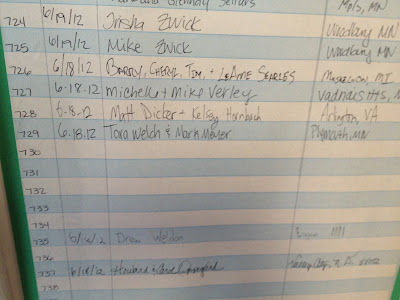 Mpls, MN
724 6/19/12 Trisha Zwick Woodbury MN
725 6/19/12 Mike Zwick Woodbury MN
726 6/18/12 Barry, Cheryl, Tim, + LeAnne Searles MI
727 6-18-12 Michelle + Mike Verley Vadnais Hts,
728 6-18-12 Matt Dicter + Kelsey Hornbach Arlington, VA
729 6-18-12 Tara Welch & Mark Meyer Plymouth, MN
730
731
732
733
734
735 Drew Weldon
736
737 6/18/12 Howard +